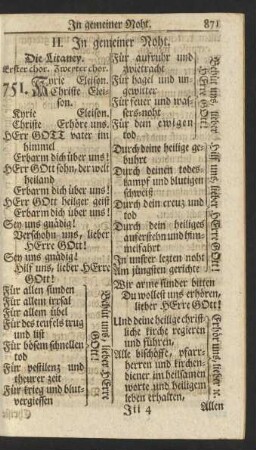 In gemeiner Noht. 871
II. In gemeiner Noht.
Die Litaney.
Erster chor. Zweyter chor.
751. Kyrie Eleison.
Christe Eleison.
Kyrie Eleison.
Christe Erhöre uns.
HErr GOTT vater im
himmel
Erbarm dich über uns!
HErr GOtt sohn, der welt
heiland
Erbarm dich über uns!
HErr GOtt heilger geist
Erbarm dich über uns!
Sey uns gnädig!
Verschohn uns, lieber
HErre GOtt!
Sey uns gnädig!
Hilf uns, lieber HErre
GOtt!
Für allen sünden
Für allem irrsal
Für allem übel
Für des teufels trug
und list
Für bösem schnellen
tod
Für pestilenz und
theurer zeit
Für krieg und blut-
vergiessen
Behüt uns, lieber HErre
GOtt!
Für aufruhr und
zwietracht
Für hagel und un-
gewitter
Für feuer und was-
sers-noht
Für dem ewigen
tod
Behüt uns, lieber
HErre GOtt!
Durch deine heilige ge-
buhrt
Durch deinen todes-
kampf und blutigen
schweiß
Durch dein creuz und
tod
Durch dein heiliges
auferstehn und him-
melfahrt
In unsrer letzten noht
Am jüngsten gerichte
Hilf uns, lieber HErre
GOtt!
Wir arme sünder bitten
Du wollest uns erhören,
lieber HErre GOtt!
Und deine heilige christ-
liche kirche regieren
und führen,
Alle bischöffe, pfarr-
herren und kirchen-
diener im heilsamen
worte und heiligem
leben erhalten,
Erhör uns, lieber rc.
Iii 4 Allen